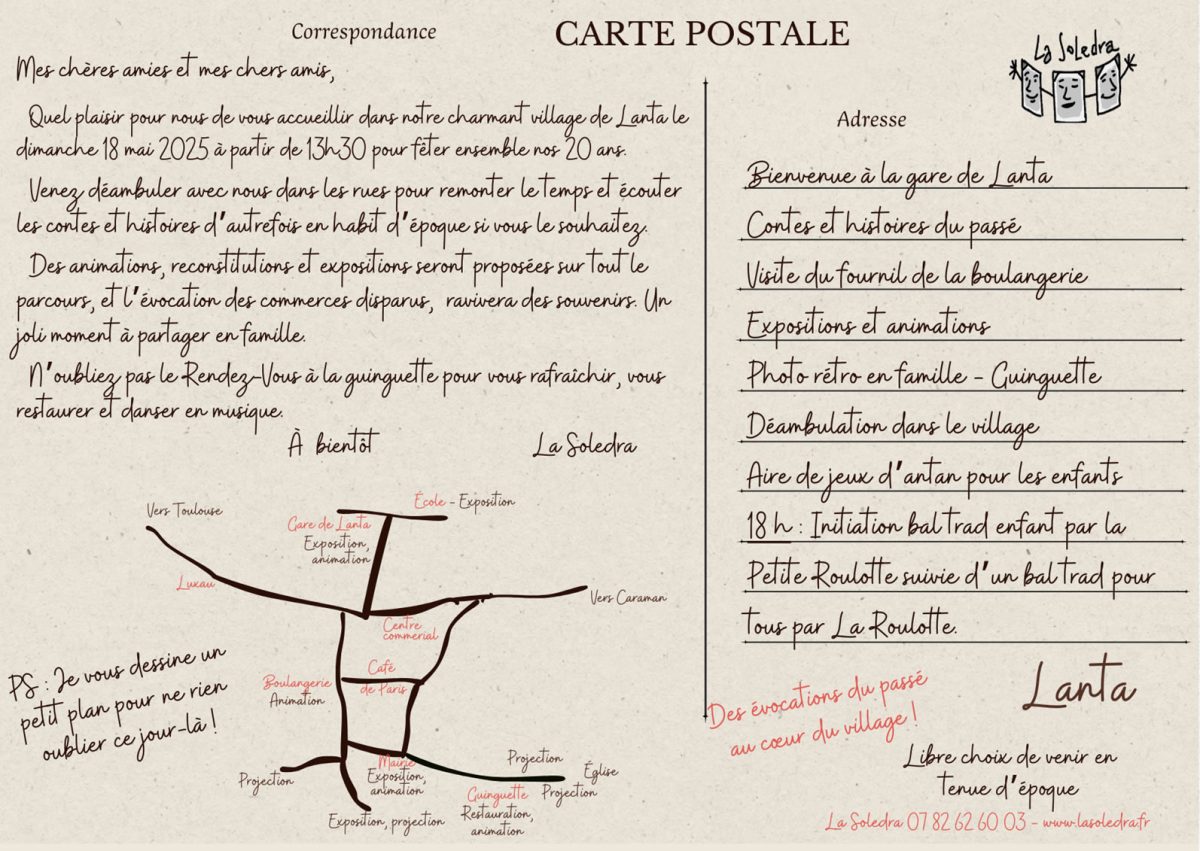 Correspondance
CARTE POSTALE
La Soledra
Mes chères amies et mes chers amis,
Quel plaisir pour nous de vous accueillir dans notre charmant village de Lanta le
dimanche 18 mai 2025 à partir de 13h30 pour fêter ensemble nos 20 ans.
Venez déambuler avec nous dans les rues pour remonter le temps et écouter
les contes et histoires d'autrefois en habit d'époque si vous le souhaitez.
Des animations, reconstitutions et expositions seront proposées sur tout le
parcours, et l'évocation des commerces disparus, ravivera des souvenirs. Un
joli moment à partager en famille.
N'oubliez pas le Rendez-Vous à la guinguette pour vous rafraîchir, vous
restaurer et danser en musique.
À bientôt
La Soledra
Vers Toulouse
École - Exposition
Gare de Lanta
Exposition,
animation
Luxau
Vers Caraman
Centre
commerial
Café
de Paris
Boulangerie
Animation
PS : Je vous dessine un
petit plan pour ne rien
oublier ce jour-là !
Mairie
Exposition,
animation
Projection
Projection
Église
Projection
Guinguette
Restauration,
animation
Exposition, projection
Adresse
Bienvenue à la gare de Lanta
Contes et histoires du passé
Visite du fournil de la boulangerie
Expositions et animations
Photo rétro en famille - Guinguette
Déambulation dans le village
Aire de jeux d'antan pour les enfants
18 h : Initiation bal trad enfant par la
Petite Roulotte suivie d'un bal trad pour
tous par La Roulotte.
Lanta
Des évocations du passé
au cœur du village !
Libre choix de venir en
tenue d'époque
La Soledra 07 82 62 60 03 - www.lasoledra.fr